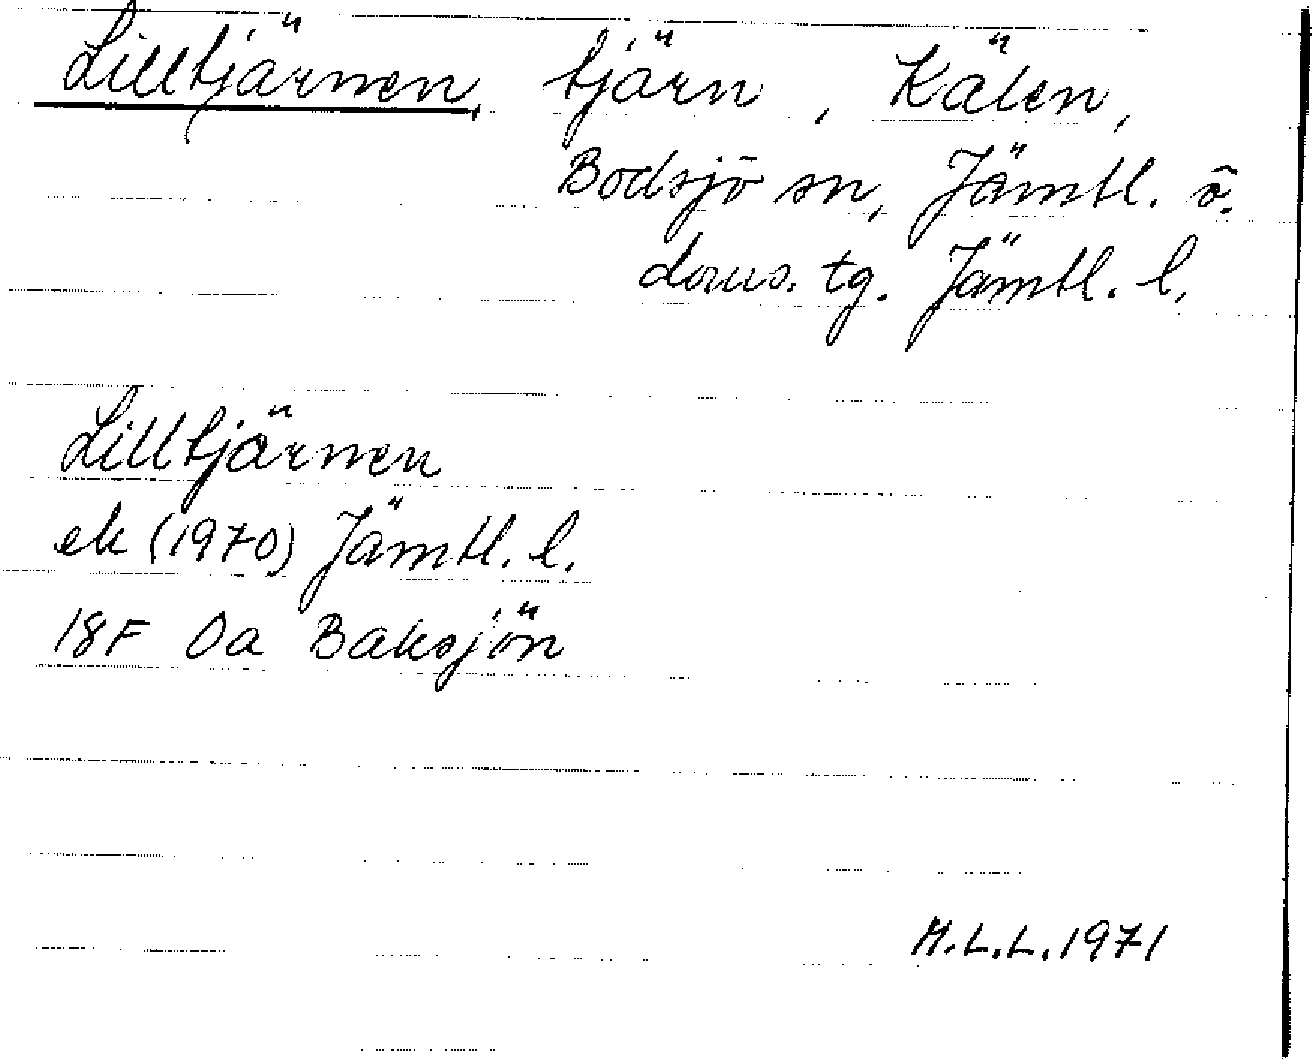 Lilltjärnen, tjärn, Kälen,
Bodsjö sn, Jämtl. ö.
doms. tg. Jämtl. l.
Lilltjärnen
ek (1970) Jämtl. l.
18F 0a Baksjön
M.L.L. 1971